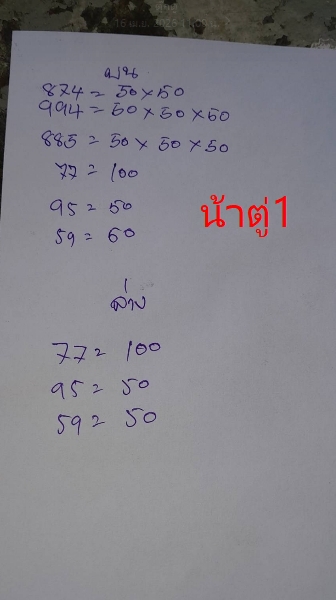 บน
874 = 50 × 50
994 = 50 × 50 × 50
885 = 50 × 50 × 50
77 = 100
95 = 50
59 = 60
น้าตู่1
ล่าง
77 = 100
95 = 50
59 = 50